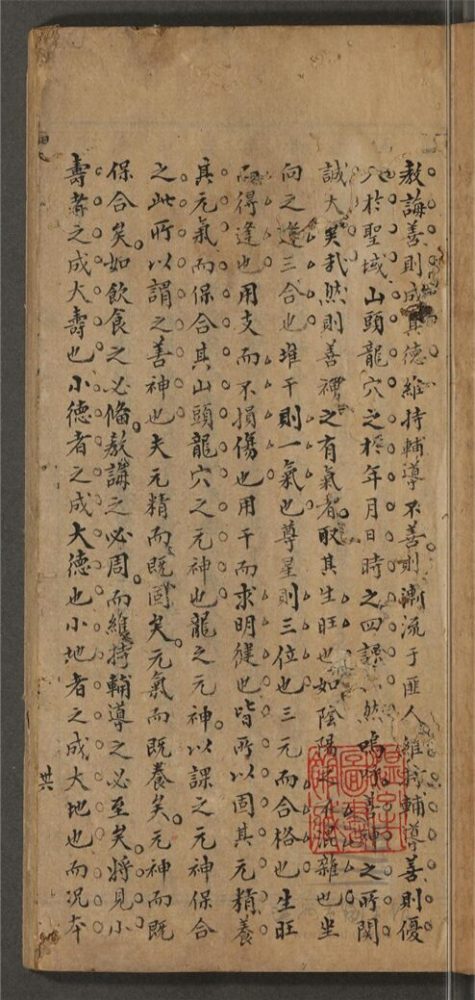 教誨善則成其德維持輔導不善則漸流于匪人維持輔導善則優
入於聖域山頭龍穴之於年月日時之四課亦然嗚呼善神之所関
誠大矣我然則善神之有氣者取其生旺也如陰陽之不混雜也坐
向之逢三合也堆干則一氣也尊星則三位也三元而合格也生旺
而得逢也用支而不損傷也用干而求明健也皆所以固其元精養
其元氣而保合其山頭龍穴之元神也龍之元神以課之元神保合
之此所以謂之善神也夫元精而既固矣元氣而既養矣元神而既
保合矣如飲食之必備教講之必周而維持輔導之必至矣將見小
壽者之成大壽也小德者之成大德也小地者之成大地也而況本
共